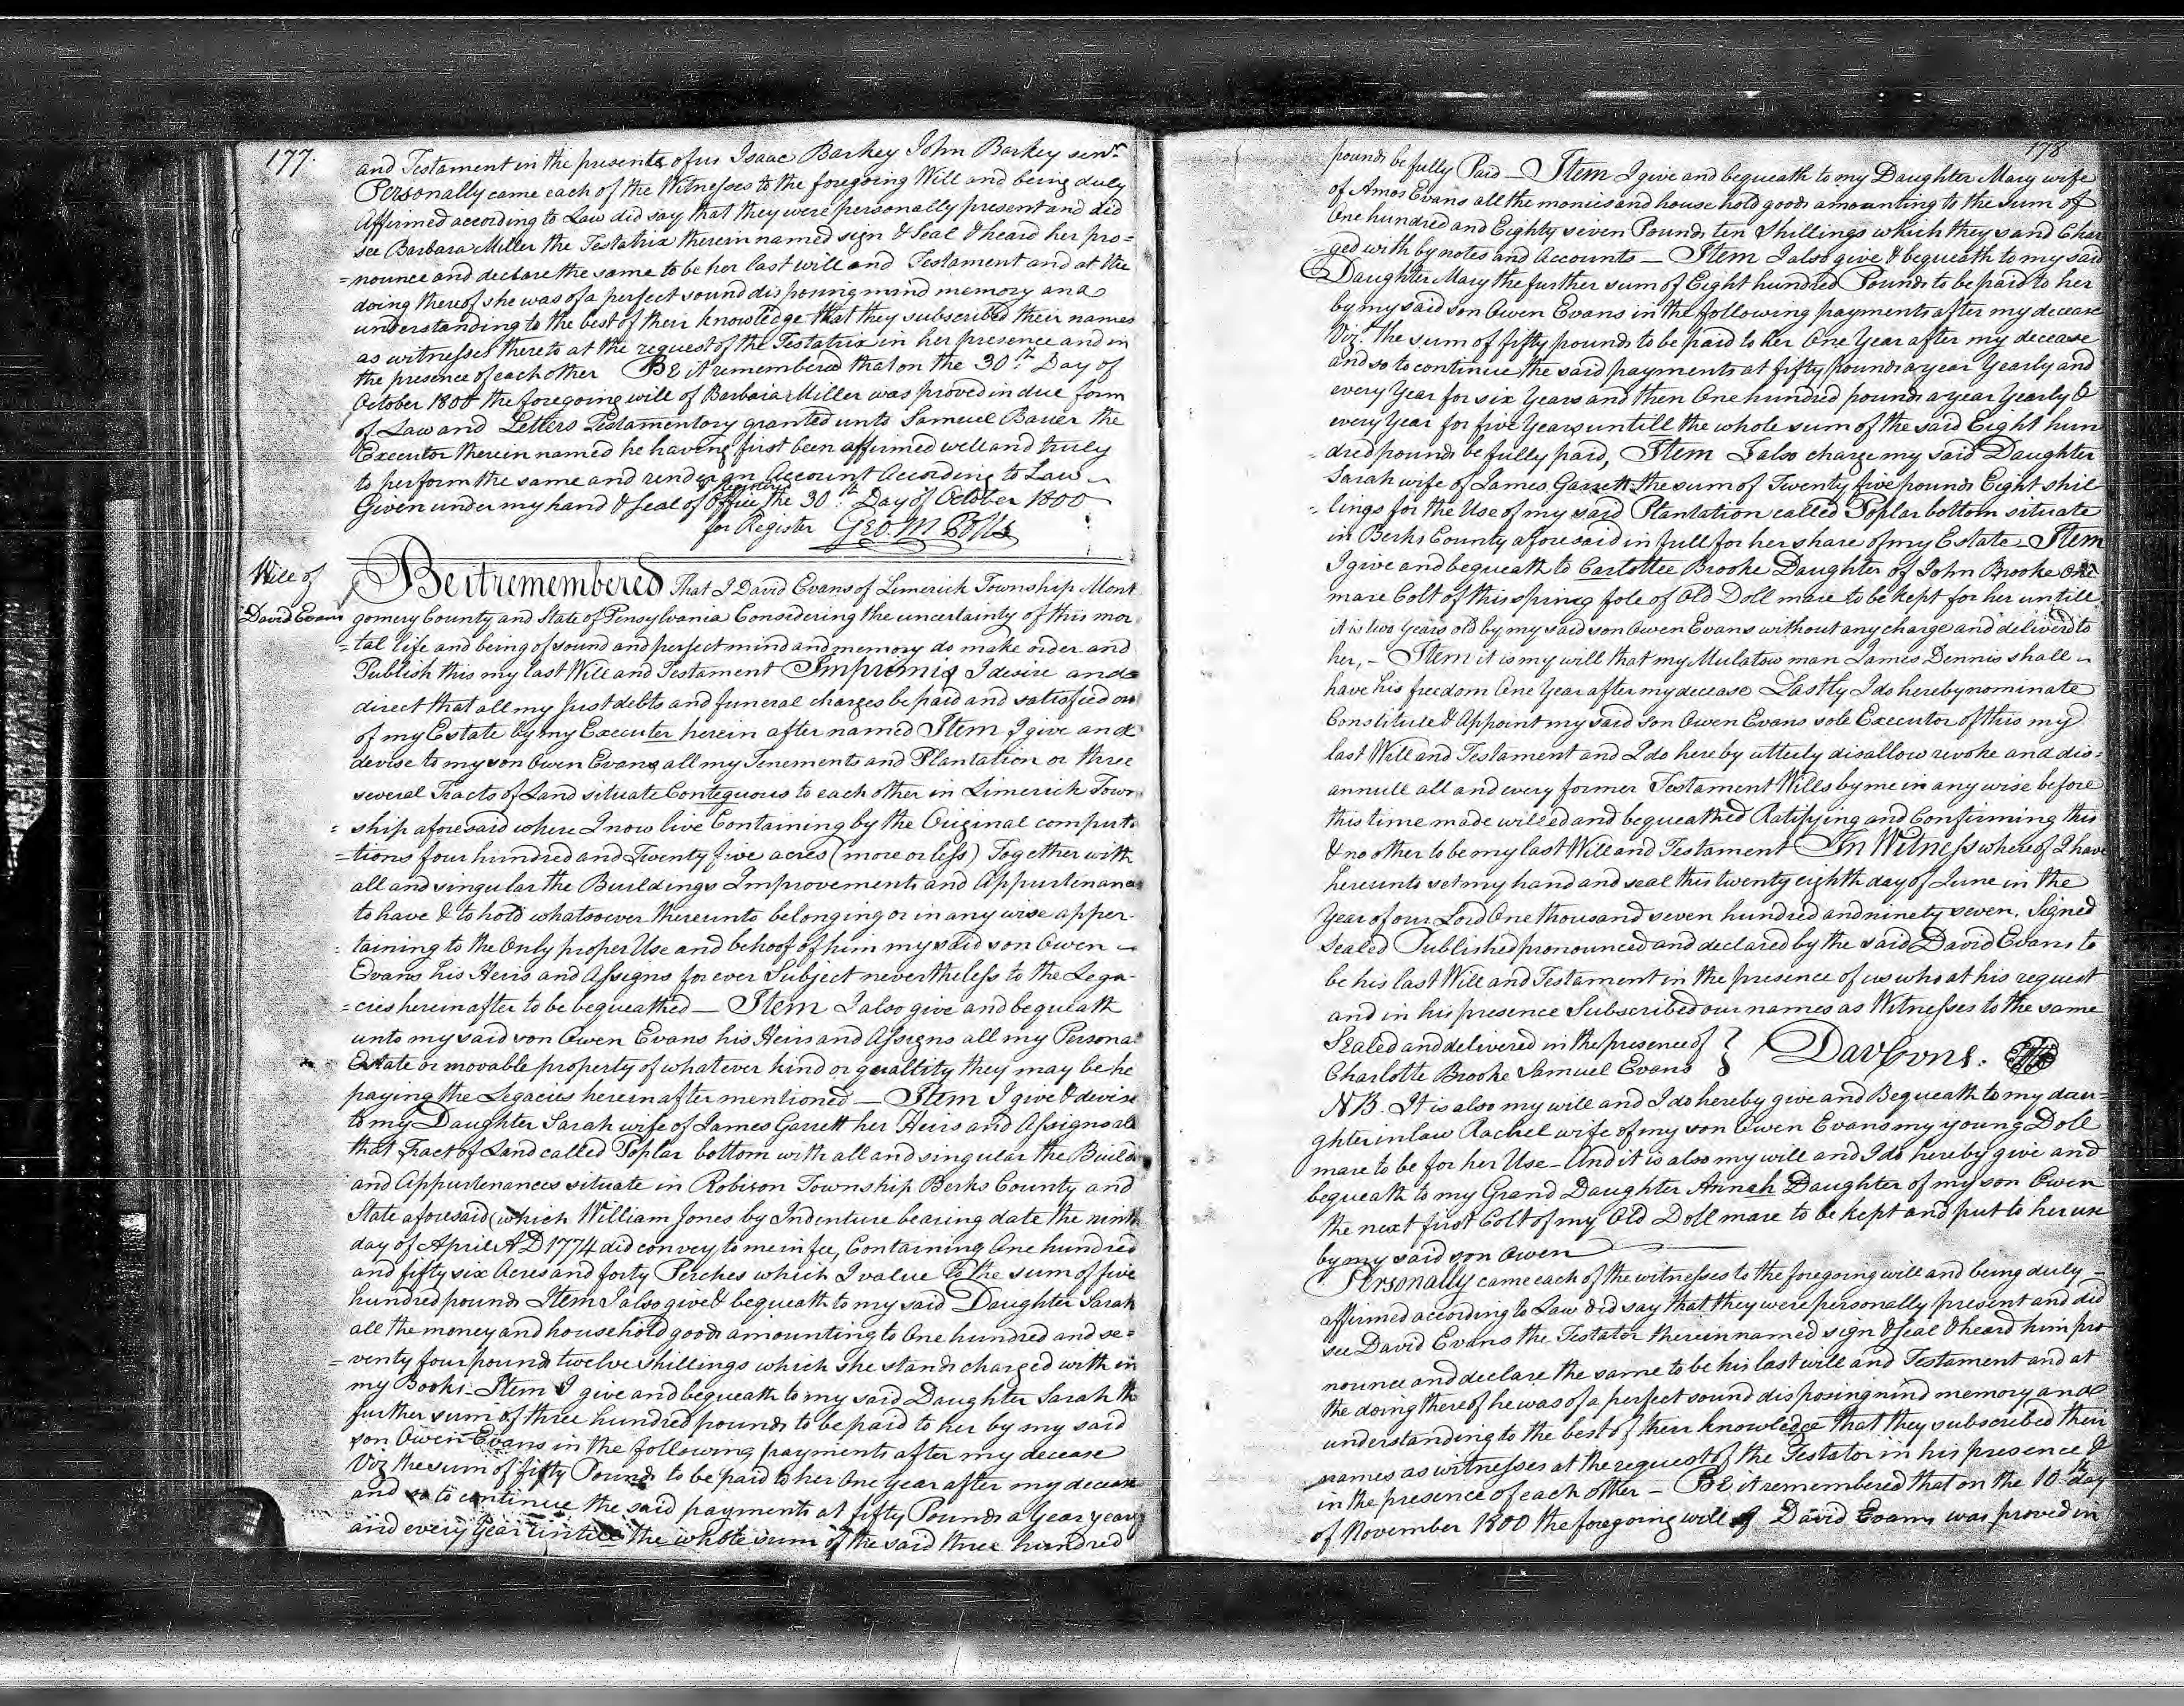 177.
and Testament in the presents of us Isaac Barkey John Barkey senr.
Personally came each of the Witnesses to the foregoing Will and being duly
Affirmed according to Law did say that they were personally present and did
see Barbara Miller the Testatrix therein named sign & Seal & heard her pro=
=nounce and declare the same to be her last will and Testament and at the
doing thereof she was of a perfect sound disposing mind memory and
understanding to the best of their knowledge that they subscribed their names
as witnesses thereto at the request of the Testatrix in her presence and in
the presence of each other BE it remembered that on the 30th. Day of
October 1800 the foregoing will of Barbara Miller was proved in due form
of Law and Letters Testamentory granted unto Samuel Bauer the
Executor therein named he having first been affirmed well and truly
to perform the same and render an Account According to Law
Given under my hand & Seal of Office the 30th. Day of October 1800
for Register Geo. M
Will of
David Evans
Be it remembered That I David Evans of Limerick Township Mont
gomery County and State of Pensylvania Considering the uncertainty of this mor
=tal life and being of sound and perfect mind and memory do make order and
Publish this my last Will and Testament Imprimis I desire and
direct that all my Just debts and funeral charges be paid and satisfied out
of my Estate by my Executer herein after named Item I give and
devise to my son Owen Evans all my Tenements and Plantation or three
several Tracts of Land situate Conteguous to each other in Limerick Town
=ship aforesaid where I now live Containing by the Original comput.
=tions four hundred and Twenty five acres (more or less) Together with
all and singular the Buildings Improvements and Appurtenances
to have & to hold whatsoever thereunto belonging or in any wise apper-
=taining to the Only proper Use and behoof of him my said son Owen
Evans his Heirs and Assigns for ever Subject nevertheless to the Lega-
=cies herein after to be bequeathed — Item I also give and bequeath
unto my said son Owen Evans his Heirs and Assigns all my Personal
Estate or movable property of whatever kind or quallity they may be he
paying the Legacies herein after mentioned — Item I give & devise
to my Daughter Sarah wife of James Garrett her Heirs and Assigns all
that Tract of Land called Poplar bottom with all and singular the Build
and Appurtenances situate in Robison Township Berks County and
State aforesaid (which William Jones by Indenture bearing date the ninth
day of April AD 1774 did convey to me in fee, Containing One hundred
and fifty six Acres and forty Perches which I value to the sum of five
hundred pounds Item I also give & bequeath to my said Daughter Sarah
all the money and household goods amounting to One hundred and se=
=venty four pounds twelve shillings which she stands charged with in
my Books - Item I give and bequeath to my said Daughter Sarah the
further sum of three hundred pounds to be paid to her by my said
son Owen Evans in the following payments after my decease
Viz the sum of fifty Pounds to be paid to her One Year after my decease
and so to continue the said payments at fifty Pounds a Year yearly
and every Year untill the whole sum of the said three hundred
178
pounds be fully Paid — Item I give and bequeath to my Daughter Mary wife
of Amos Evans all the monies and house hold goods amounting to the sum of
One hundred and Eighty seven Pounds ten Shillings which they sand Char
=ged with by notes and Accounts — Item I also give & bequeath to my said
Daughter Mary the further sum of Eight hundred Pounds to be paid to her
by my said son Owen Evans in the following payments after my decease
Vizt. the sum of fifty pounds to be paid to her One Year after my decease
and so to continue the said payments at fifty pounds a year Yearly and
every Year for six Years and then One hundred pounds a year Yearly &
every Year for five Years untill the whole sum of the said Eight hun
=dred pounds be fully paid, Item I also charge my said Daughter
Sarah wife of James Garrett the sum of Twenty five pounds Eight shil
=lings for the Use of my said Plantation called Poplar bottom situate
in Berks County aforesaid in full for her share of my Estate — Item
I give and bequeath to Carlottee Brooke Daughter of John Brooke one
mare Colt of this spring fole of Old Doll mare to be kept for her untill
it is two Years old by my said son Owen Evans without any charge and deliverd to
her, - Item it is my will that my Mulatow man James Dennis shall
have his freedom One Year after my decease Lastly I do hereby nominate
Constitute & Appoint my said son Owen Evans sole Executor of this my
last Will and Testament and I do hereby utterly disallow revoke and dis=
annull all and every former Testament Wills by me in any wise before
this time made willed and bequeathed Ratifying and Confirming this
& no other to be my last Will and Testament In Witness whereof I have
hereunto set my hand and seal this twenty eighth day of June in the
Year of our Lord One thousand seven hundred and ninety seven. Signed
Sealed Published pronounced and declared by the said David Evans to
be his last Will and Testament in the presence of us who at his request
and in his presence Subscribed our names as Witnesses to the same
Sealed and delivered in the presence of } Dav Evans.
Charlotte Brooke Samuel Evans
NB. It is also my will and I do hereby give and Bequeath to my dau=
ghter in law Rachel wife of my son Owen Evans my young Doll
mare to be for her Use — And it is also my will and I do hereby give and
bequeath to my Grand Daughter Annah Daughter of my son Owen
the next first Colt of my Old Doll mare to be kept and put to her use
by my said son Owen
Personally came each of the witnesses to the foregoing will and being duly
affirmed according to Law did say that they were personally present and did
see David Evans the Testator therein named sign & seal & heard him pro
nounce and declare the same to be his last will and Testament and at
the doing thereof he was of a perfect sound disposing mind memory and
understanding to the best of their knowledge that they subscribed their
names as witnesses at the request of the Testator in his presence &
in the presence of each other — BE it remembered that on the 10th. day
of November 1800 the foregoing will of David Evans was proved in